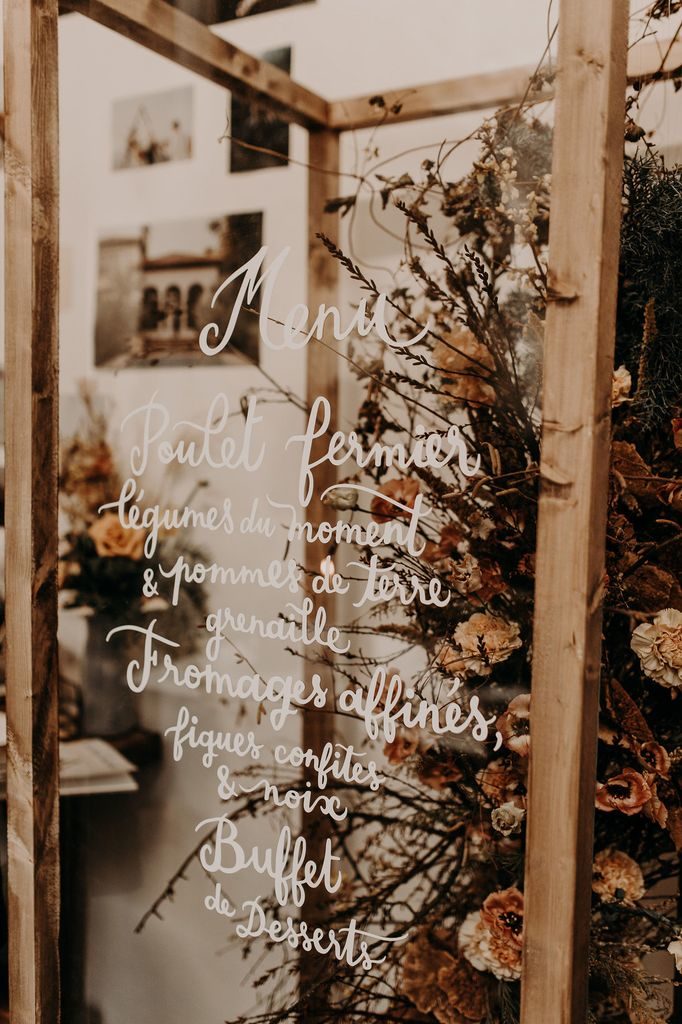 Menu
Poulet fermier
légumes du moment
& pommes de terre
grenaille
Fromages affinés,
figues confites
& noix
Buffet
de Desserts